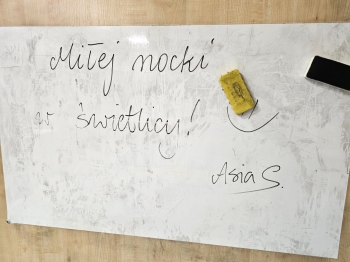 Miłej nocki
w świetlicy!
Asia S.